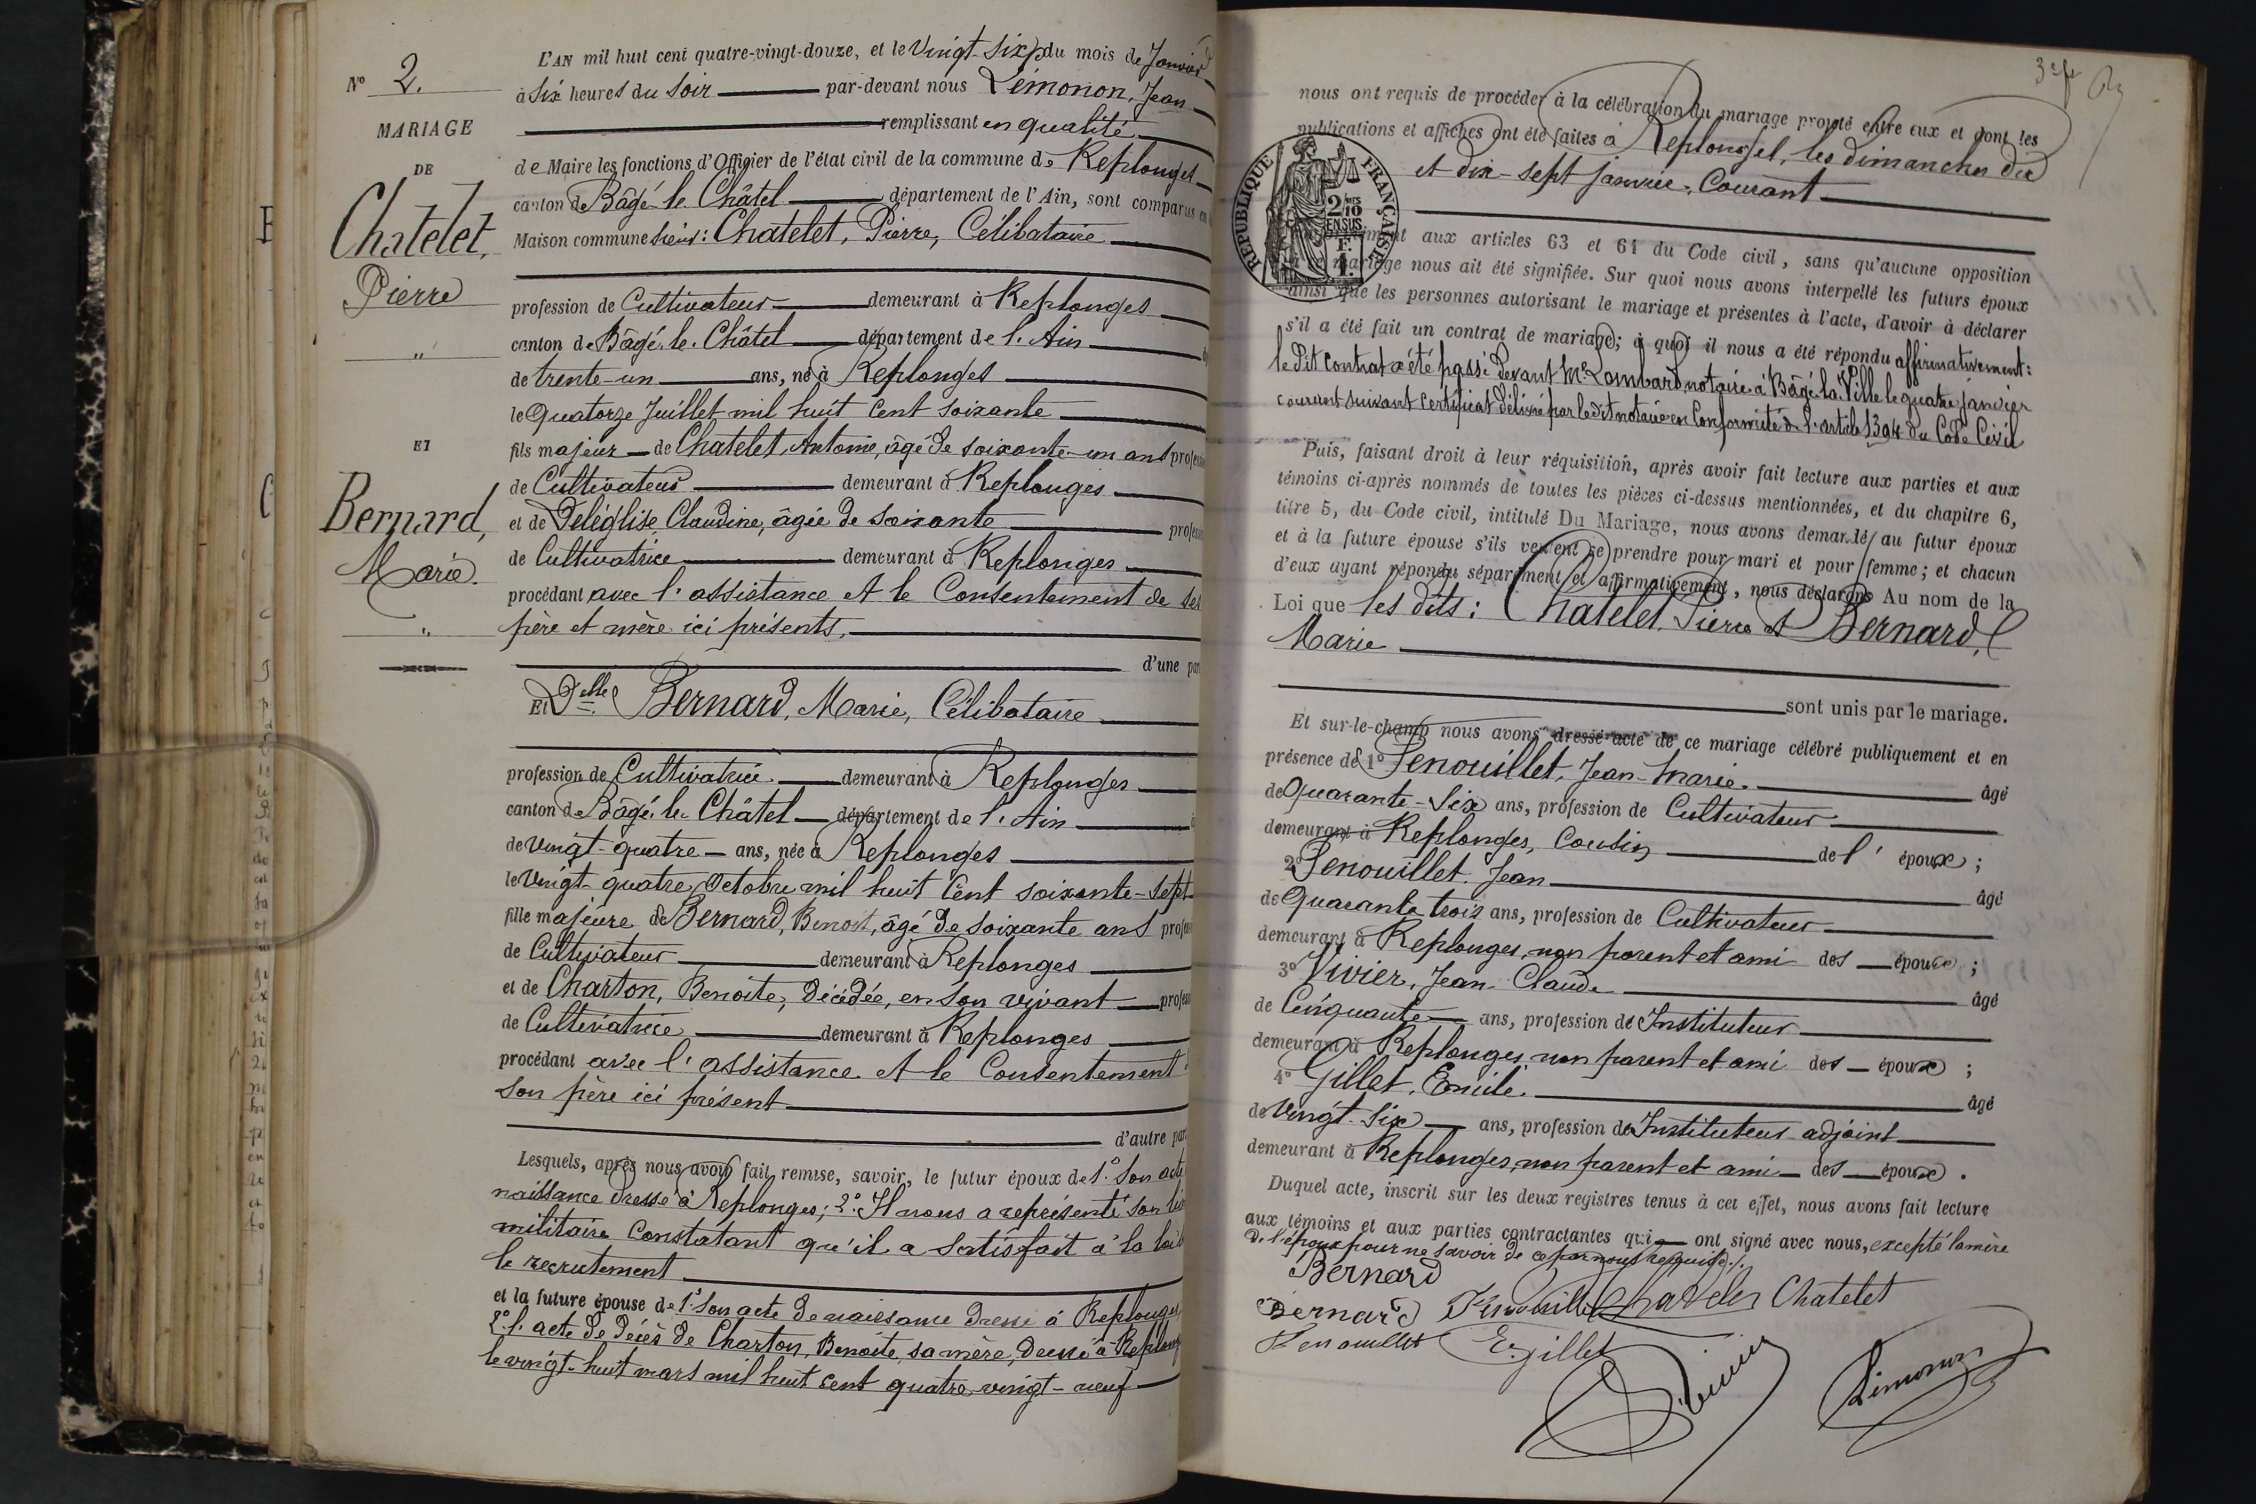 L'AN mil huit cent quatre-vingt-douze, et le Vingt-Six du mois de Janvier
N° 2.
à Six heures du Soir par-devant nous Lémonon, Jean
MARIAGE
remplissant en qualité
DE
de Maire les fonctions d'Officier de l'état civil de la commune de Replonges
canton de Bâgé-le-Châtel département de l'Ain, sont comparus en
Chatelet,
Maison commune Sieur: Chatelet, Pierre, Célibataire
Pierre
profession de Cultivateur demeurant à Replonges
canton de Bâgé-le-Châtel département de l'Ain
"
de trente-un ans, né à Replonges
le Quatorze Juillet mil huit Cent soixante
ET
fils majeur de Chatelet, Antoine, âgé de soixante-un ans profession
de Cultivateur demeurant à Replonges
Bernard,
et de Deléglise, Claudine, âgée de soixante profession
Marie.
de Cultivatrice demeurant à Replonges
procédant avec l'assistance et le Consentement de ses
père et mère ici présents,
"
d'une part
Et Delle Bernard, Marie, Célibataire
profession de Cultivatrice. demeurant à Replonges
canton de Bâgé-le-Châtel département de l'Ain
de vingt-quatre ans, née à Replonges
le Vingt-quatre Octobre mil huit Cent soixante-sept
fille majeure de Bernard, Benoit, âgé de soixante ans profession
de Cultivateur demeurant à Replonges
et de Charton, Benoite, décédée, en son vivant profession
de Cultivatrice demeurant à Replonges
procédant avec l'assistance et le Consentement
son père ici présent
d'autre part
Lesquels, après nous avoir fait remise, savoir, le futur époux de 1° Son acte
naissance dressé à Replonges; 2° Il nous a représenté son
militaire Constatant qu'il a satisfait à la loi
le recrutement
et la future épouse de 1° Son acte de naissance dressé à Replonges
2° l'acte de décès de Charton, Benoite, sa mère, dressé à Replonges
le vingt-huit mars mil huit cent quatre-vingt-neuf
3e f
nous ont requis de procéder à la célébration du mariage projeté entre eux et dont les
publications et affiches ont été faites à Replonges, les dimanches dix
et dix-sept janvier, Courant
RÉPUBLIQUE FRANÇAISE
2/10
EN SUS
1 F.
aux articles 63 et 64 du Code civil, sans qu'aucune opposition
à ce mariage nous ait été signifiée. Sur quoi nous avons interpellé les futurs époux
ainsi que les personnes autorisant le mariage et présentes à l'acte, d'avoir à déclarer
s'il a été fait un contrat de mariage; à quoi il nous a été répondu affirmativement:
le dit contrat a été passé devant Me Lombard, notaire à Bâgé-la-Ville le quatre janvier
courant suivant certificat délivré par le dit notaire en Conformité de l'article 1394 du Code Civil
Puis, faisant droit à leur réquisition, après avoir fait lecture aux parties et aux
témoins ci-après nommés de toutes les pièces ci-dessus mentionnées, et du chapitre 6,
titre 5, du Code civil, intitulé Du Mariage, nous avons demandé au futur époux
et à la future épouse s'ils veulent se prendre pour mari et pour femme; et chacun
d'eux ayant répondu séparément et affirmativement, nous déclarons Au nom de la
Loi que les dits: Chatelet, Pierre et Bernard,
Marie
sont unis par le mariage.
Et sur-le-champ nous avons dressé acte de ce mariage célébré publiquement et en
présence de 1° Penouillet, Jean-Marie. âgé
de Quarante-Six ans, profession de Cultivateur
demeurant à Replonges, Cousin de l'époux;
2° Penouillet, Jean âgé
de Quarante trois ans, profession de Cultivateur
demeurant à Replonges, non parent et ami des époux;
3° Vivier, Jean-Claude âgé
de Cinquante ans, profession de Instituteur
demeurant à Replonges, non parent et ami des époux;
4° Gillet, Emile. âgé
de Vingt-Six ans, profession de Instituteur-adjoint
demeurant à Replonges, non parent et ami des époux.
Duquel acte, inscrit sur les deux registres tenus à cet effet, nous avons fait lecture
aux témoins et aux parties contractantes qui ont signé avec nous, excepté la mère
de l'époux pour ne savoir de ce par nous requise.
Bernard
Bernard Chatelet Chatelet
Penouillet E. Gillet
Lémonon